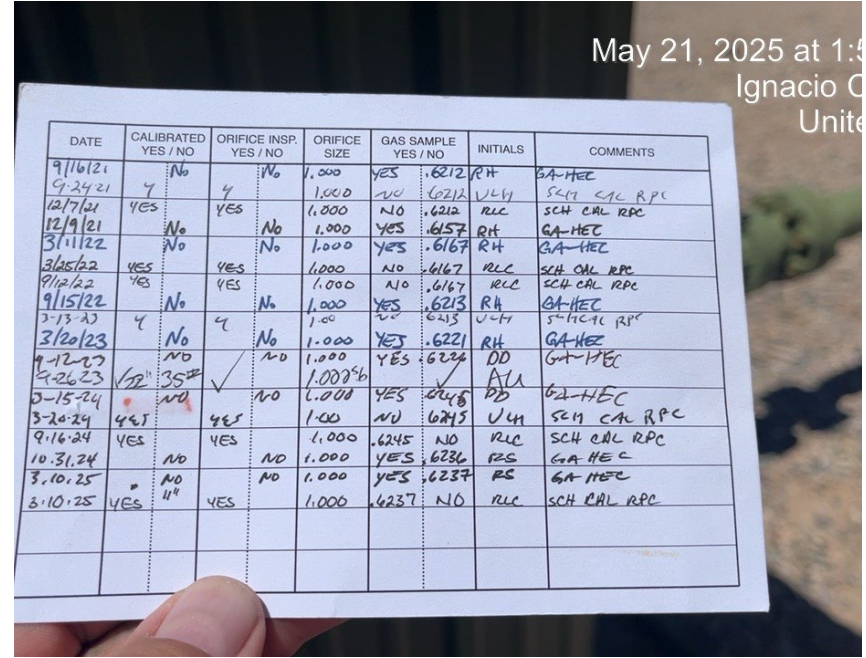 May 21, 2025 at 1:5
Ignacio C
Unite
DATE CALIBRATED YES / NO ORIFICE INSP. YES / NO ORIFICE SIZE GAS SAMPLE YES / NO INITIALS COMMENTS
9/16/21 No No 1.000 YES .6212 RH GA-HEC
9-24-21 Y Y 1.000 NO .6212 VLH SCH CAL RPC
12/7/21 YES YES 1.000 NO .6212 RLC SCH CAL RPC
12/9/21 No No 1.000 YES .6157 RH GA-HEC
3/11/22 No No 1.000 YES .6167 RH GA-HEC
3/25/22 YES YES 1.000 NO .6167 RLC SCH CAL RPC
9/12/22 YES YES 1.000 NO .6167 RLC SCH CAL RPC
9/15/22 No No 1.000 YES .6213 RH GA-HEC
3-13-23 Y Y 1.00 NO 6213 VLH SCH CAL RPC
3/20/23 No No 1.000 YES .6221 RH GA-HEC
9-12-23 NO NO 1.000 YES DD GA-HEC
9-26-23 ✓ 35 ✓ ✓ AU
-15-24 NO NO 1.000 YES DD GA-HEC
3-20-24 YES YES 1.00 NO 6245 VLH SCH CAL RPC
9.16.24 YES YES 1.000 .6245 NO RLC SCH CAL RPC
10.31.24 NO NO 1.000 YES .6236 RS GA HEC
3.10.25 NO NO 1.000 YES .6237 RS GA-HEC
3.10.25 YES YES 1.000 .6237 NO RLC SCH CAL RPC